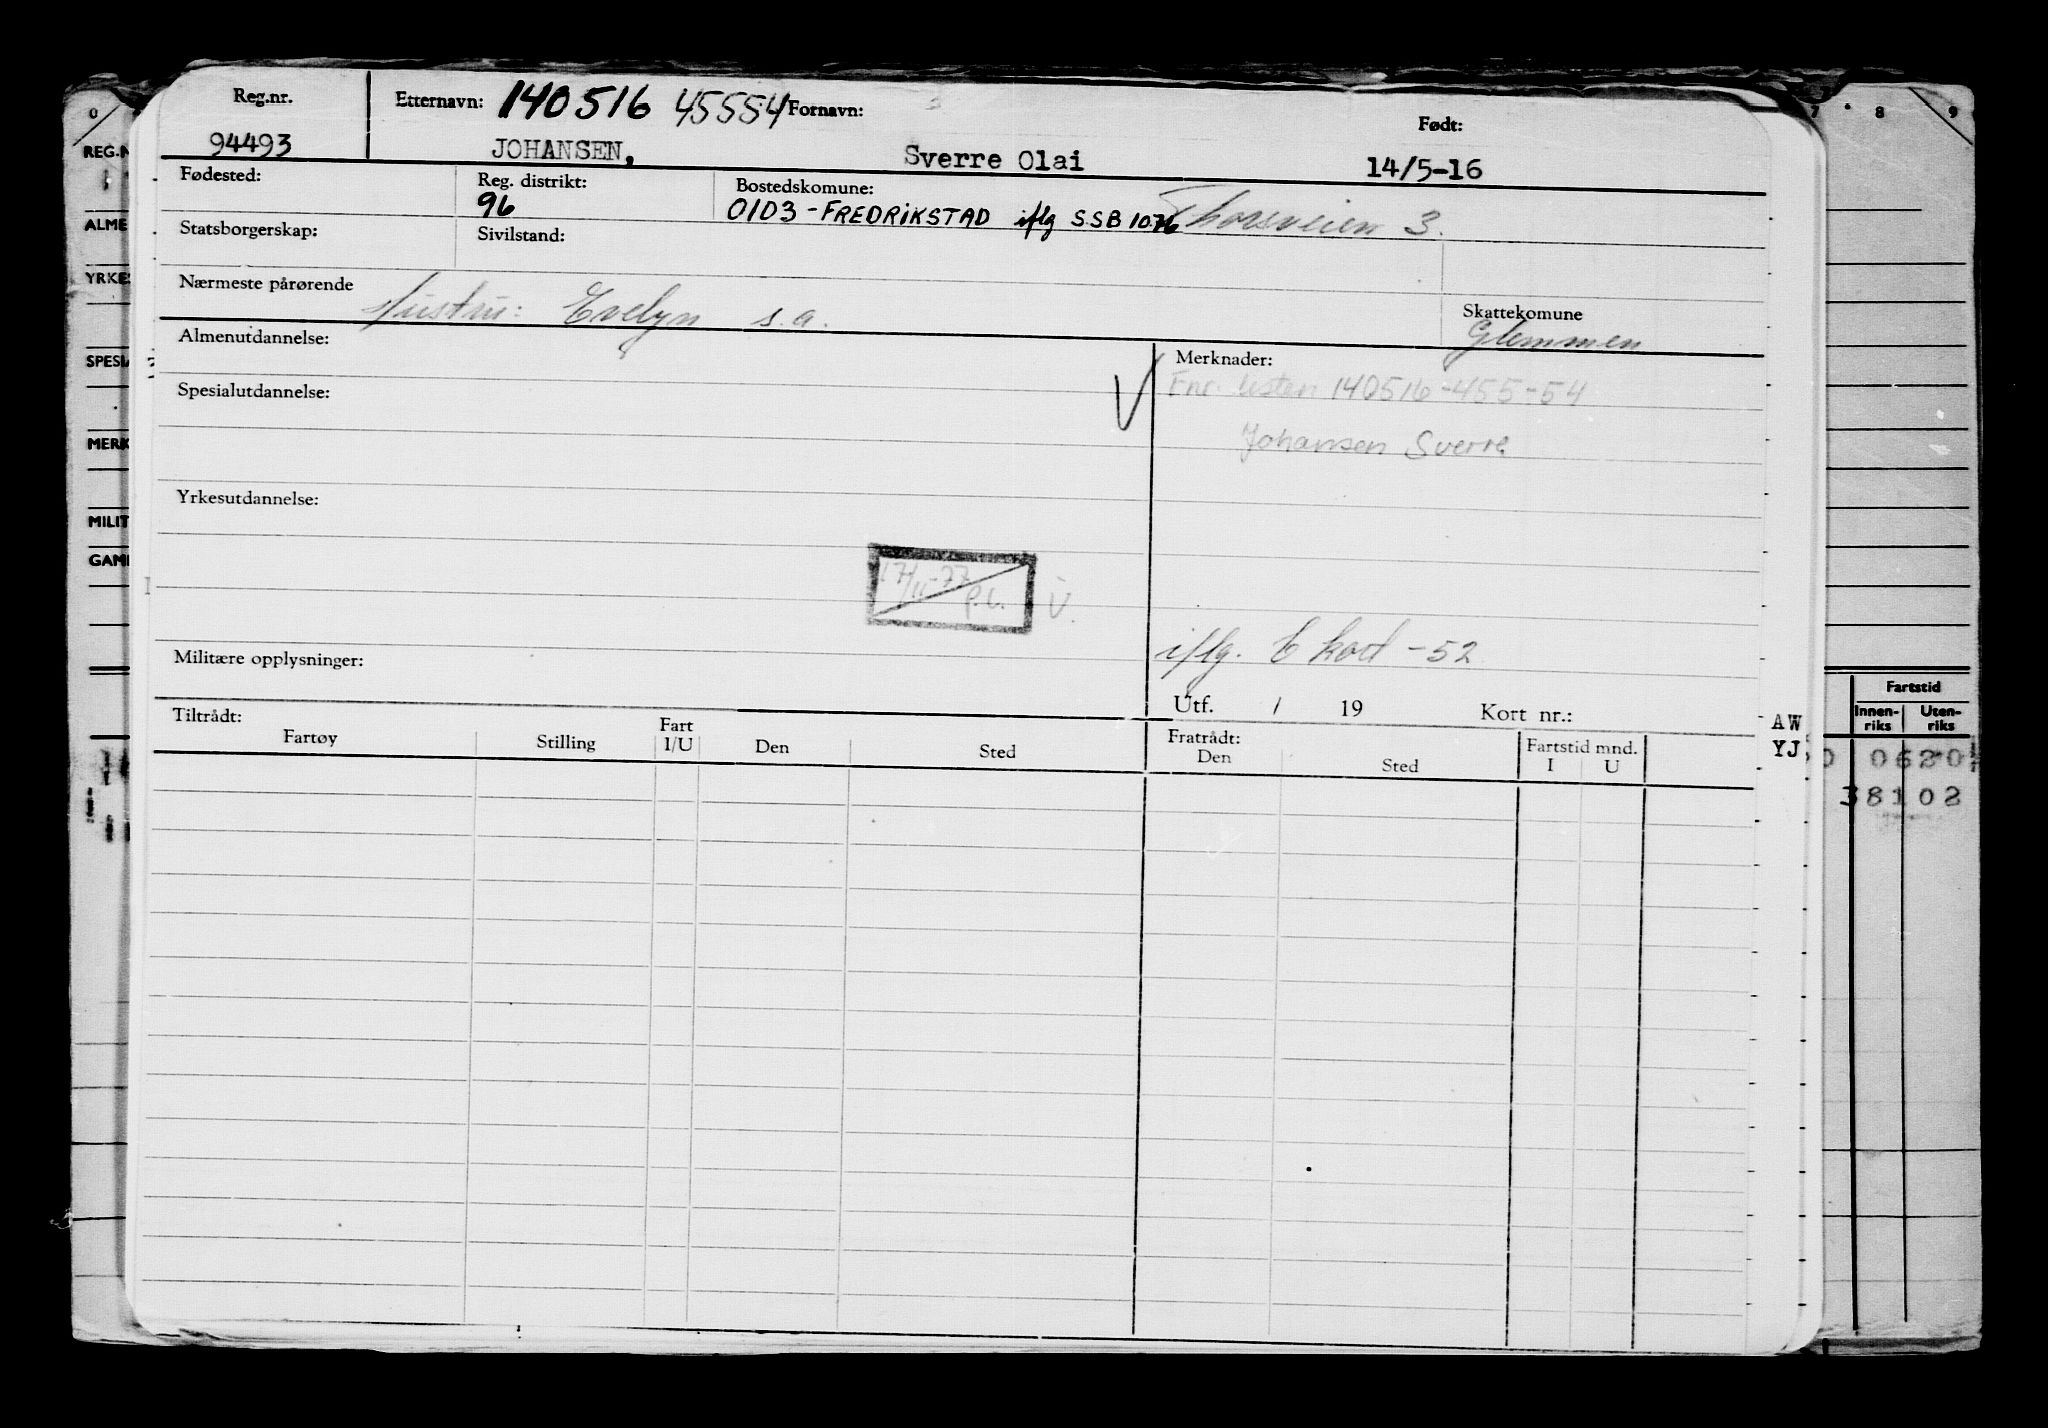 Reg.nr. Etternavn: 140516 45554 Fornavn: Født:
94493 JOHANSEN, Sverre Olai 14/5-16
Fødested: Reg. distrikt: Bostedskomune:
96 0103-FREDRIKSTAD iflg S.S.B 10.76 Thorsveien 3.
Statsborgerskap: Sivilstand:
Nærmeste pårørende Hustru: Evelyn s.a.
Skattekomune
Glemmen
Almenutdannelse: Merknader:
Fnr. listen 140516-455-54
Spesialutdannelse:
Johansen Sverre
Yrkesutdannelse:
17/11-77 P.L. V.
iflg. E kort -52
Militære opplysninger:
Utf. / 19 Kort nr.:
Tiltrådt: Fratrådt:
Fartøy Stilling Fart I/U Den Sted Den Sted Fartstid mnd. I U
AW
YJ
0 7 8 9
REG.N
ALME
YRKES
SPESIA
MERK
MILIT
GAM
Fartstid
Innen-riks Uten-riks
0 0620
38102